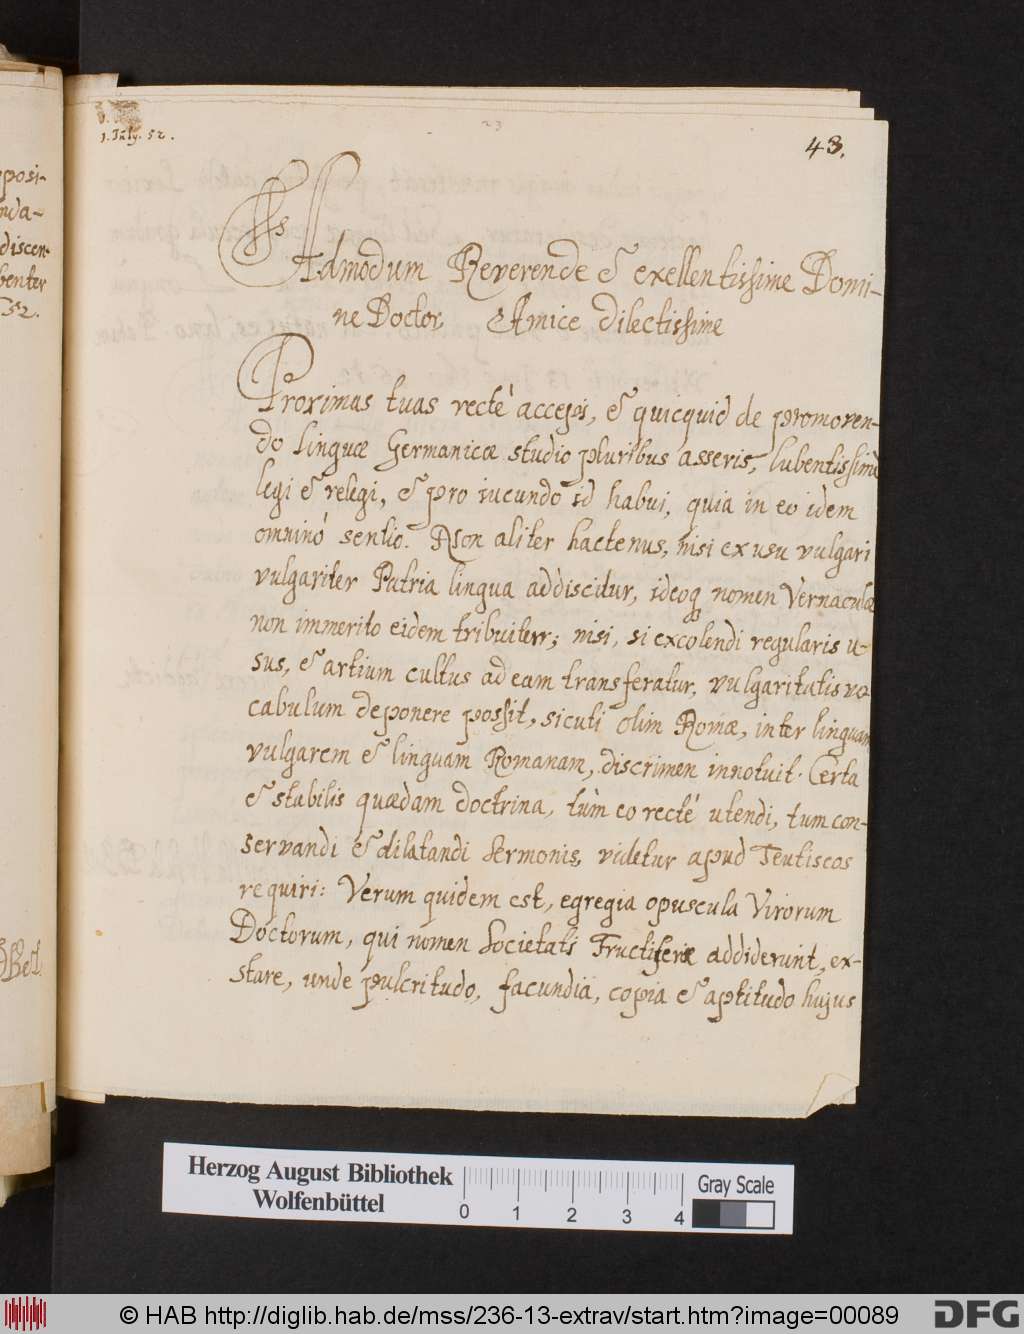 1. July. 52.
23
43.
posi-
nda-
discen-
benter
52.
Admodum Reverende & exellentissime Domi-
ne Doctor, Amice dilectissime
Proximas tuas recté accepi, & quicquid de promoven-
do linguæ Germanicæ studio pluribus asseris, lubentissimè
legi & relegi, & pro iucundo id habui, quia in eo idem
omninó sentio. Non aliter hactenus, nisi ex usu vulgari
vulgariter Patria lingua addiscitur, ideoq nomen Vernaculæ
non immerito eidem tribuitur; nisi, si excolendi regularis u-
sus, & artium cultus ad eam transferatur, vulgaritatis vo-
cabulum deponere possit, sicuti olim Romæ, inter linguam
vulgarem & linguam Romanam, discrimen innotuit. Certa
& stabilis quædam doctrina, tùm eo recté utendi, tum con-
servandi & dilatandi sermonis, videtur apud Teutiscos
requiri: Verum quidem est, egregia opuscula Virorum
Doctorum, qui nomen Societati Fructiferæ addiderunt, ex-
stare, unde pulcritudo, facundia, copia & aptitudo hujus
Herzog August Bibliothek
Wolfenbüttel
0 1 2 3 4
Gray Scale
© HAB http://diglib.hab.de/mss/236-13-extrav/start.htm?image=00089
DFG